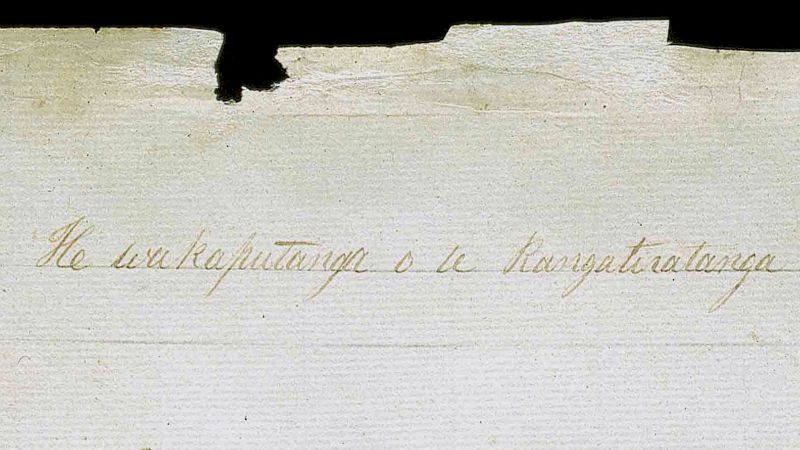 He wakaputanga o te Rangatiratanga